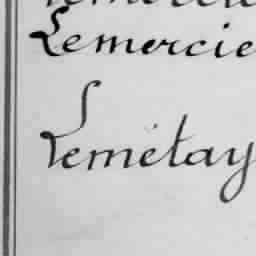 Lemercie
Lemétay